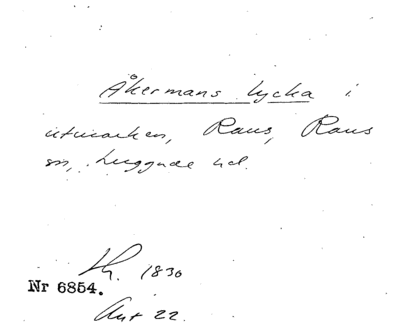 Åkermans lycka i
utmarken, Raus, Raus
sn, Luggude hd.
Lh. 1830
Nr 6854.
Akt 22.